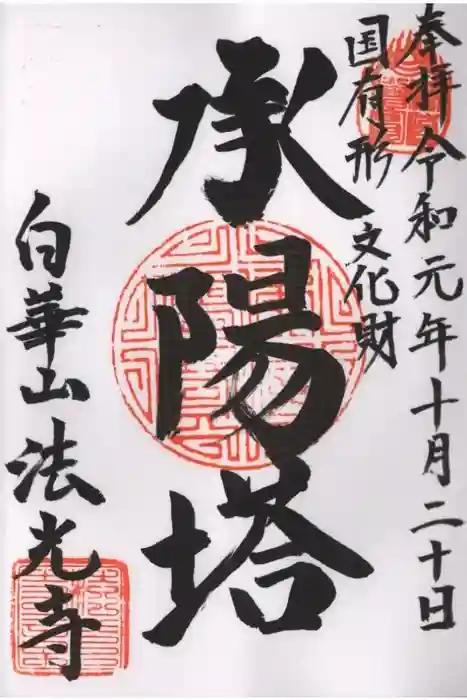 奉拝令和元年十月二十日
国有形文化財
承陽塔
白華山法光寺